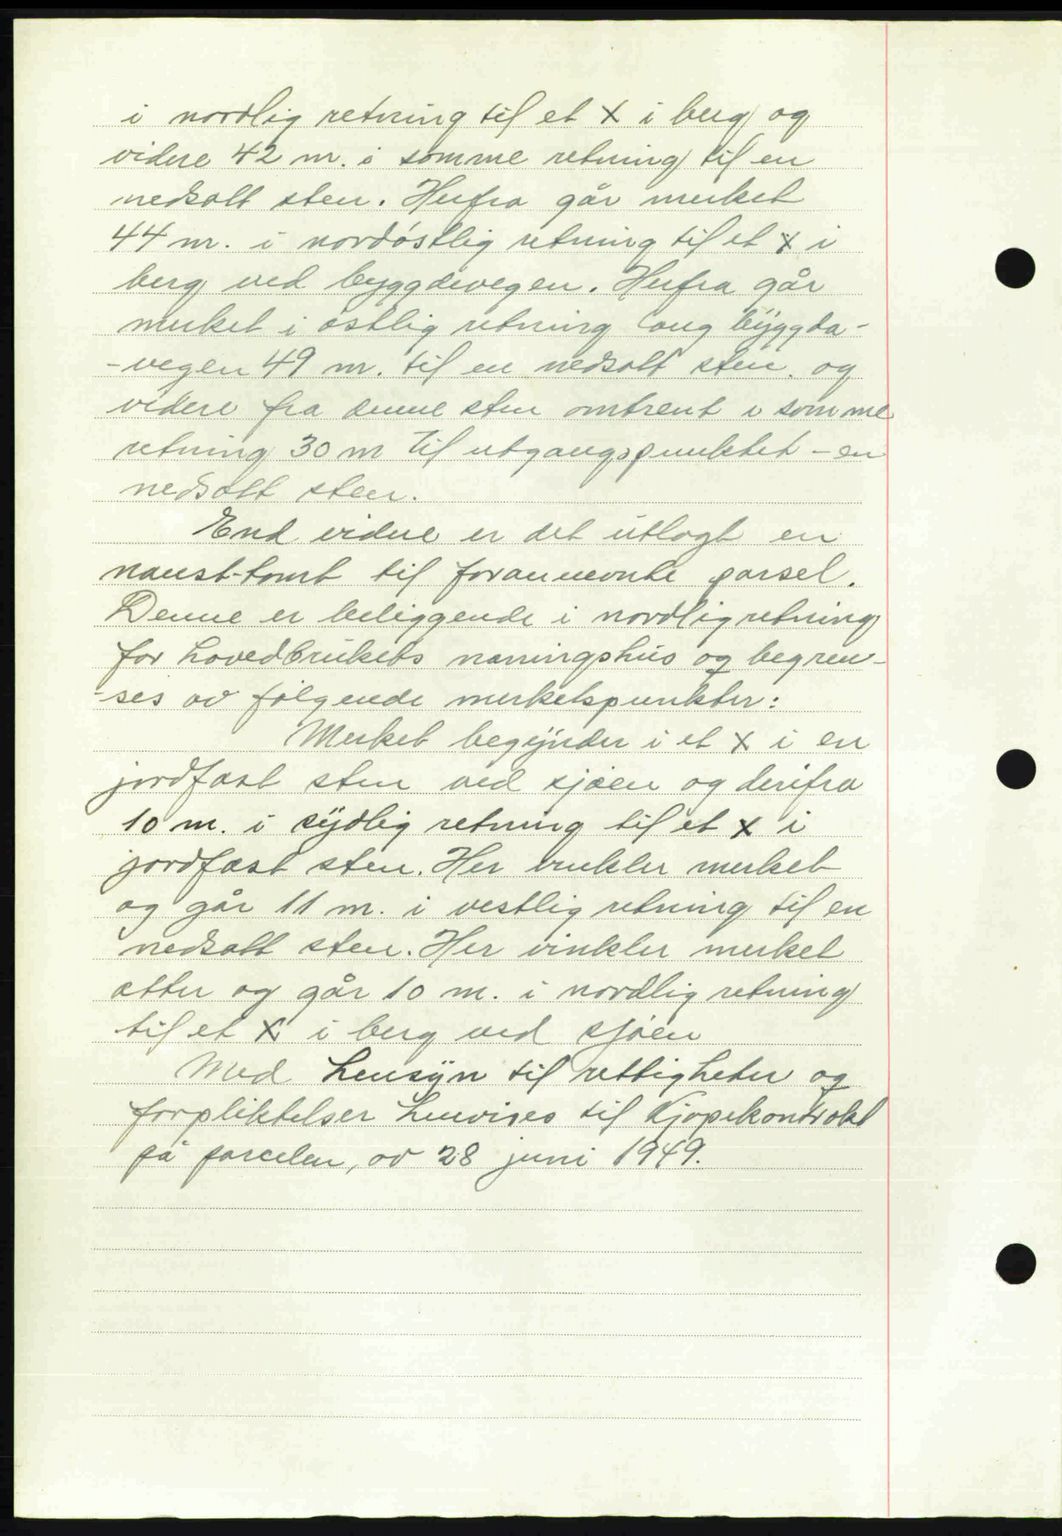 i nordlig retning til et X i berg og
videre 42 m. i samme retning til en
nedsatt sten. Herfra går merket
44 m. i nordøstlig retning til et x i
berg ved byggdevegen. Herfra går
merket i østlig retning lang byggda-
-vegen 49 m. til en nedsatt sten. og
videre fra denne sten omtrent i samme
retning 30 m til utgangspunktet - en
nedsatt sten.
End videre er det utlagt en
naust-tomt til forannevnte parsel.
Denne er beliggende i nordlig retning
for hovedbrukets våningshus og begren-
-ses av følgende merkelspunkter:
Merket begynder i et X i en
jordfast sten ved sjøen og derifra
10 m. i sydlig retning til et x i
jordfast sten. Her vinkler merket
og går 11 m. i vestlig retning til en
nedsatt sten. Her vinkler merket
atter og går 10 m. i nordlig retning
til et X i berg ved sjøen
Med hensyn til rettigheter og
forpliktelser henvises til Kjøpekontrakt
på parcelen, av 28 juni 1949.